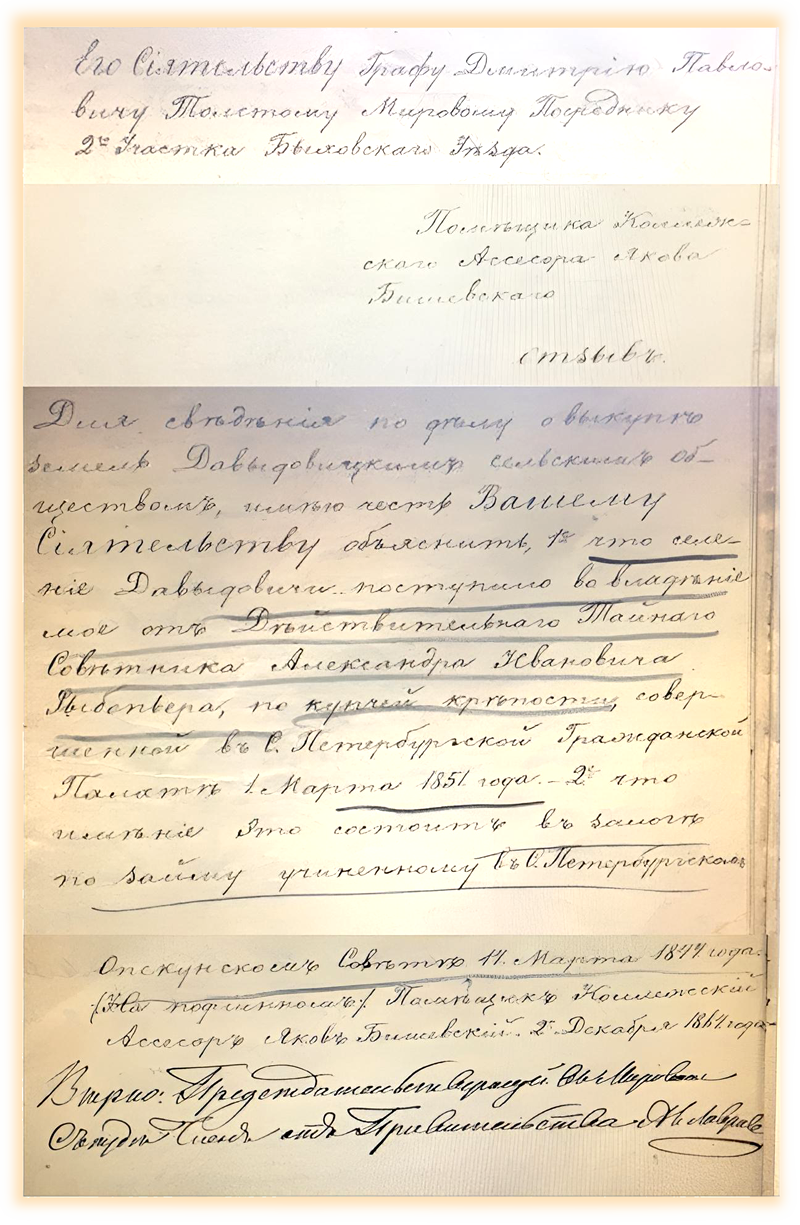 Его Сіятельству Графу Дмитрію Павло-
вичу Толстому Мировому Посреднику
2го Участка Быховскаго Уѣзда.
Помѣщика Коллеж-
скаго Ассесора Якова
Бишевскаго
отзывъ.
Для свѣдѣнія по дѣлу о выкупѣ
земель Давыдовицкимъ сельскимъ об-
ществомъ, имѣю честь Вашему
Сіятельству объяснить, 1е что селе-
ніе Давыдовичи поступило во владѣніе
мое отъ Дѣйствительнаго Тайнаго
Совѣтника Александра Ивановича
Рыбопьера, по купчей крѣпости, совер-
шенной въ С. Петербургской Гражданской
Палатѣ 1 Марта 1851 года. – 2е что
имѣніе это состоитъ въ залогѣ
по займу учиненному въ С. Петербургскомъ
Опекунскомъ Совѣтѣ 14 Марта 1844 года.
/:На подлинномъ:/ Помѣщикъ Коллежскій
Ассесоръ Яковъ Бишевскій. 2е Декабря 1864 года
Вѣрно: Председательствующій Мировом
Съѣзда Членъ отъ Правительства Лавров